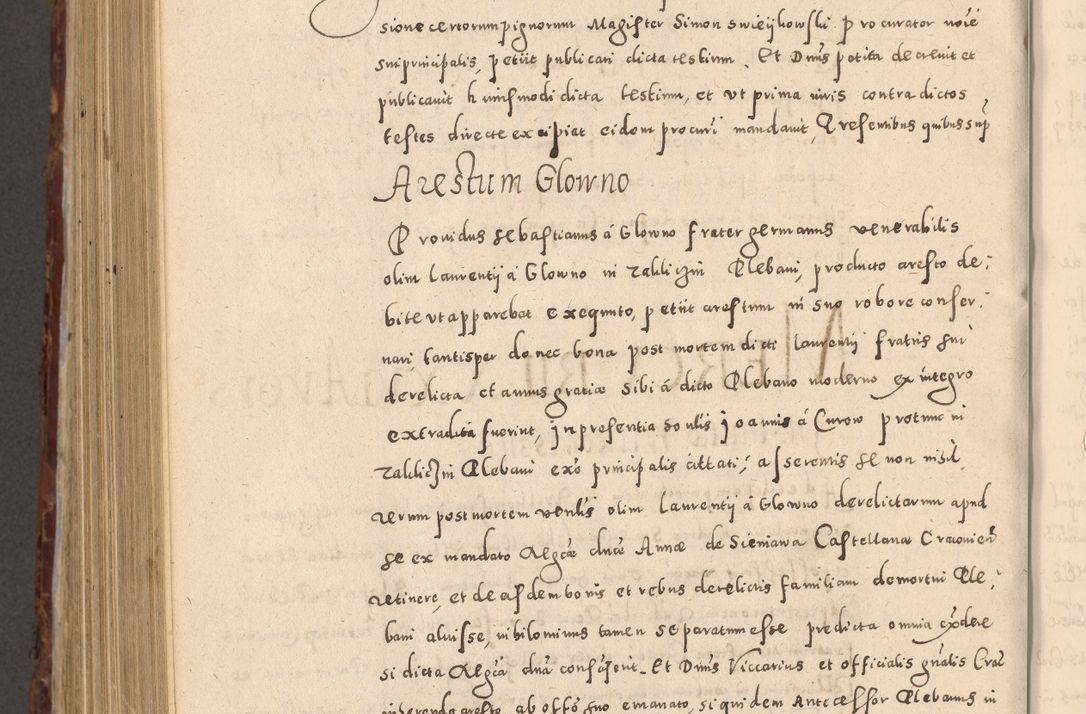 sione certorum pignorum Magister Simon Swieijkowski procurator noie
sui principalis, petiit publicari dicta testium. Et Dnus petita decreuit et
publicauit huiusmodi dicta testium, et vt prima iuris contra dictos
testes directe excipiat eidem procuri mandauit, Presentibus quibus sup
Arestum Glowno
Prouidus Sebastianus á Glowno frater germanus venerabilis
olim Laurentij á Glowno in Plebani, producto aresto de:
bite vt apparebat exequuto, petiit arestum in suo robore conser:
uari, tantisper donec bona post mortem dicti Laurentij fratris sui
derelicta et annus gratiæ sibi á dicto Plebano moderno ex integro
extradita fuerint, in presentia Ioannis á Curow protunc in
Plebani exo principalis citati, asserentis se non nisil
rerum post mortem venlis olim Laurentij á Glowno derelictarum apud
se ex mandato Mgcæ dnæ Annæ de Sieniawa Castellanæ Cracovien
retinere, et de asdem bonis et rebus derelictis familiam demortui Ple:
bani aluisse, nihilominus tamen se paratum esse predicta omnia exdere
si dicta Mgca dna consenserit. Et Dnus Viccarius et officialis gnalis Crac
inherendo aresto ab offo suo emanato, siquidem Antecessor Plebanus in